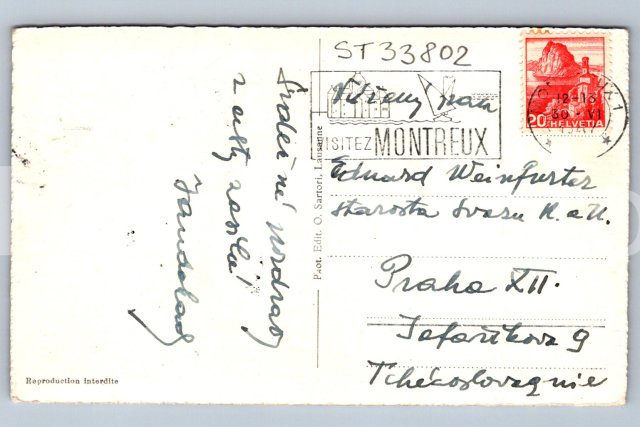 ST33802
Vážený pan
VISITEZ MONTREUX
12-13
30. VI
20 HELVETIA
Eduard Weinfurter
starosta Svazu K. a U.
Praha XII.
Šafaříkova 9
Tchécoslovaquie
Srdečné pozdravy
z cesty zasílá
Phot. Edit. O. Sartori, Lausanne
Reproduction interdite